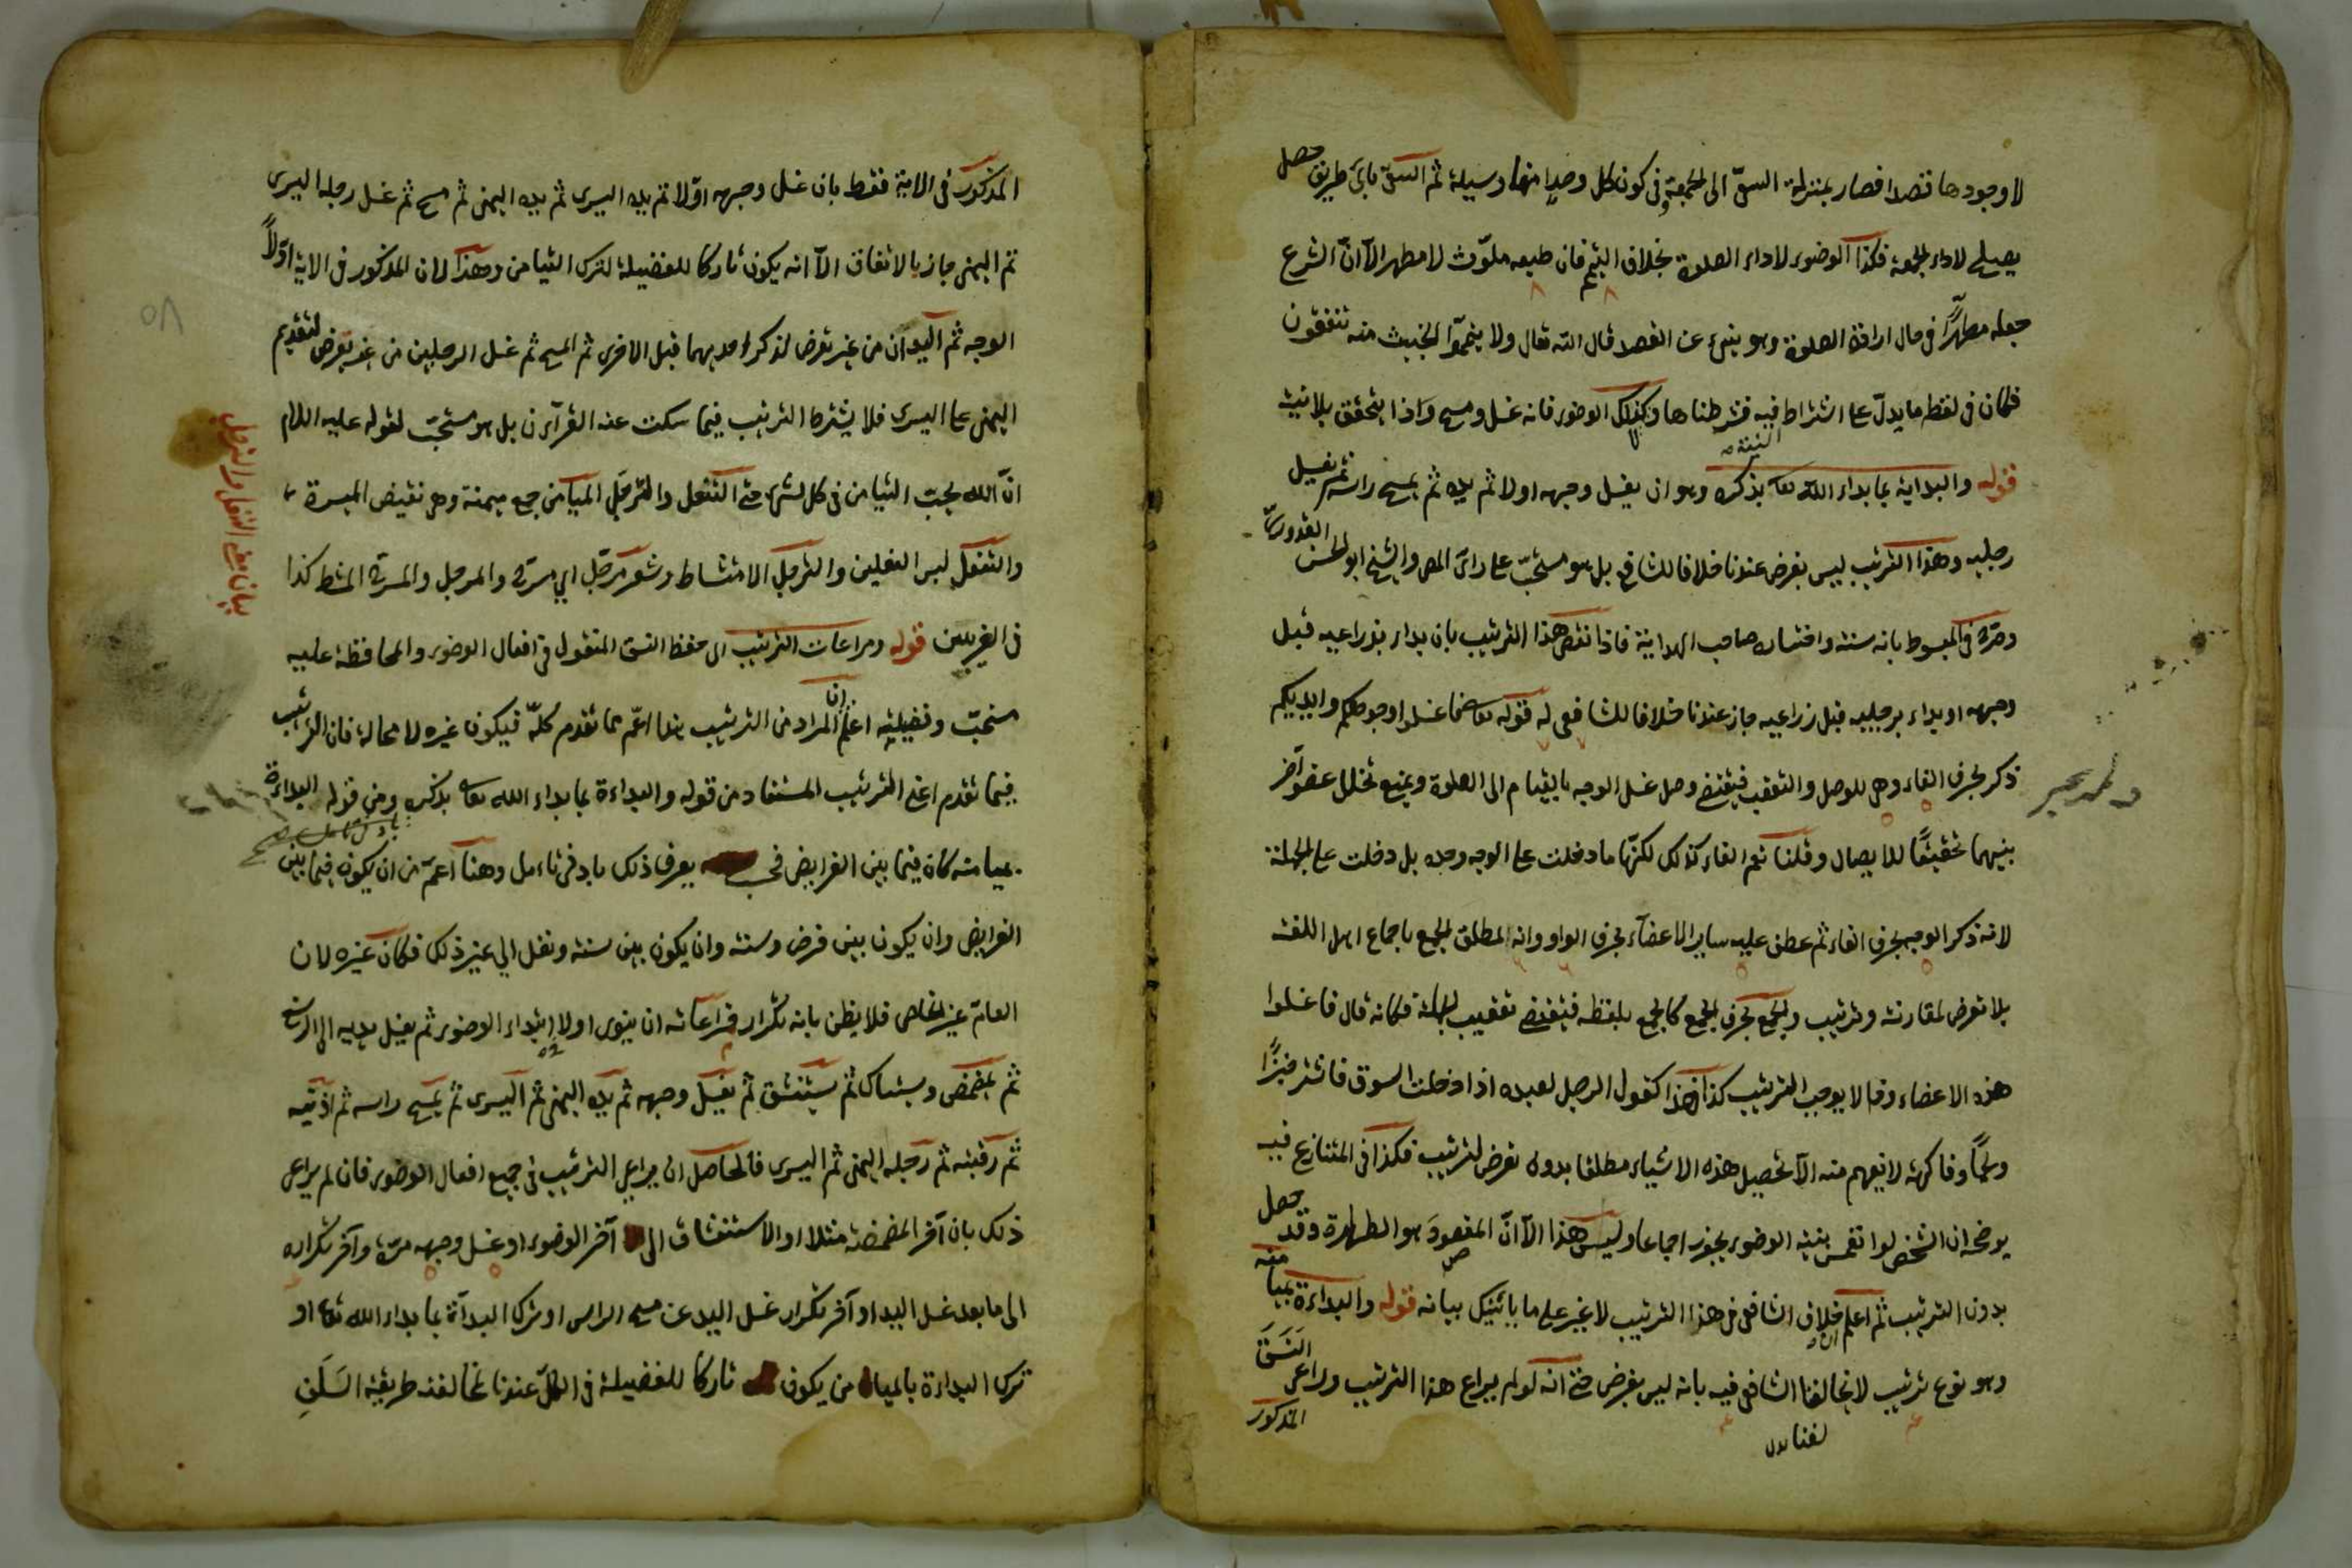 لا وجودها قصدا فصار بمنزلة السعىّ الى الجمعة فى كون كل وحد منهما وسيلة ثم السعىّ باىّ طريق حصل
يصلح لاداء الجمعة فكذا الوضوء لاداء الصلوة بخلاف التيمم فان طبعه ملوّث لا مطهر الّا انّ الشرع
جعله مطهرًّا فى حال ارادة الصلوة وهو ينبىء عن القصد قال الله تعال ولا يتمّموا الخبيث منه تنفقون
فكان فى لفظه ما يدلّ على اشتراط فيه فشرطناها وكذلك الوضوء فانه غسل ومسح واذا يتحقق بلا نيت
النية
قوله والبداية بما بداء الله تعا بذكره وهو ان يغسل وجهه اولا ثم يديه ثم يمسح راسه ثم يغسل
رجليه وهذا الترتيب ليس بفرض عندنا خلافا للشافعى بل هو مستحبّ على راى المص والشيخ ابو الحسن القدورى
وصرّح فى المبسوط بانه سنة واختاره صاحب الهداية فاذا نقض هذا الترتيب بان بداء بذراعيه قبل
وجهه او بداء برجليه قبل زراعيه جاز عندنا خلافا للشافعى له قوله تعا فاغسلوا وجوهكم وايديكم
ذكر بحرف الفاء وهى للوصل والتعقب فيقتضى وصل غسل الوجه بالقيام الى الصلوة ويمنع تخلل عضو آخر
بينهما تحقيقًا للايصال وقلنا نعم الفاء كذلك لكنّها ما دخلت على الوجه وحده بل دخلت على الجملة
لانه ذكر الوجه بحرف الفاء ثم عطف عليه ساير الاعضآء بحرف الواو وانه لمطلق الجمع باجماع اهل اللغة
بلا تعرض لمقارنة وترتيب والجمع بحرف الجمع كالجمع بلفظه فيقتضى تعقيب الجملة فكانه قال فاغسلوا
هذه الاعضاء وذا لا يوجب الترتيب كذا هذا كقول الرجل لعبده اذا دخلت السوق فاشتر خبزًا
ولحمًا وفاكهة لا يفهم منه الّا تحصيل هذه الاشياء مطلقا بدون تعرض لترتيب فكذا فى المتنازع فيه
يوضحه ان الشخص لو انغمس بنية الوضوء يجوز اجماعا وليس هذا الّا انّ المقصود هو الطهارة وقد حصل
بدون الترتيب ثم اعلم خلاف الشافعى فى هذا الترتيب لا غير على ما ياتيك بيانه قوله والبداءة بميا منه
وهو نوع ترتيب لا يخالفنا الشافعى فيه بانه ليس بفرض حتى انه لو لم يراع هذا الترتيب وراعى النَسَقَ
المذكور
المذكور فى الاية فقط بان غسل وجهه اوّلا ثم يده اليسرى ثم يده اليمنى ثم مسح ثم غسل رجله اليسرى
ثم اليمنى جاز بالاتفاق الّا انه يكون تاركا للفضيلة لترك التيامن وهذا لان المذكور فى الاية اوّلاً
الوجه ثم اليدان من غير تعرض لذكر احديهما قبل الاخرى ثم المسح ثم غسل الرجلين من غير تعرض لتقديم
اليمنى على اليسرى فلا يشترط الترتيب فيما سكت عنه القرآن بل هو مستحبّ لقوله عليه السلام
انّ الله يحبّ التيامن فى كل شىء حتى التنعل والترجّل الميامن جمع ميمنة وهى نقيض الميسرة
والتنعّل لبس النعلين والترجل الامتشاط وشعر مرجّل اى مسرّح والمرجل والمسرح المشط كذا
فى الغريبين قوله ومراعات الترتيب الى حفظ النسق المنقول فى افعال الوضوء والمحافظة عليه
مستحبّ وفضيلته اعلم ان المراد من الترتيب هنا اعّم مما تقدم كلّه فيكون غيره لا محالة فان الترتيب
فيما تقدم اعنى الترتيب المستفاد من قوله والبداءة بما بداء الله تعا بذكره ومن قوله البداءة
بميامنه كان فيما بين الفرايض فحسب يعرف ذلك بادنى تاءمل وهنا اعمّ من ان يكون فيما بين
الفرايض وان يكون بين فرض وسنة وان يكون بين سنة ونفل الى غير ذلك فكان غيره لان
العامّ غير الخاص فلا يظن بانه تكرار فمراعاته ان ينوى اولا ابتداء الوضوء ثم يغسل يديه الى الرسغ
ثم يمضمض ويستاك ثم يستنشق ثم يغسل وجهه ثم يده اليمنى ثم اليسرى ثم يمسح راسه ثم اذنيه
ثم رقبته ثم رجله اليمنى ثم اليسرى فالحاصل ان يراعى الترتيب فى جميع افعال الوضوء فان لم يراعى
ذلك بان آخر المضمضة مثلا او الاستنشاق الى آخر الوضوء او غسل وجهه مرّة وآخر تكراره
الى ما بعد غسل اليد او آخر تكرار غسل اليد عن مسح الراس او ترك البداءة بما بداء الله تعا او
ترك البداءة بالميامن يكون تاركا للفضيلة فى الكلّ عندنا لمخالفته طريقة السَلَفِ
بيان معنى التنعل والترجل
٥٨